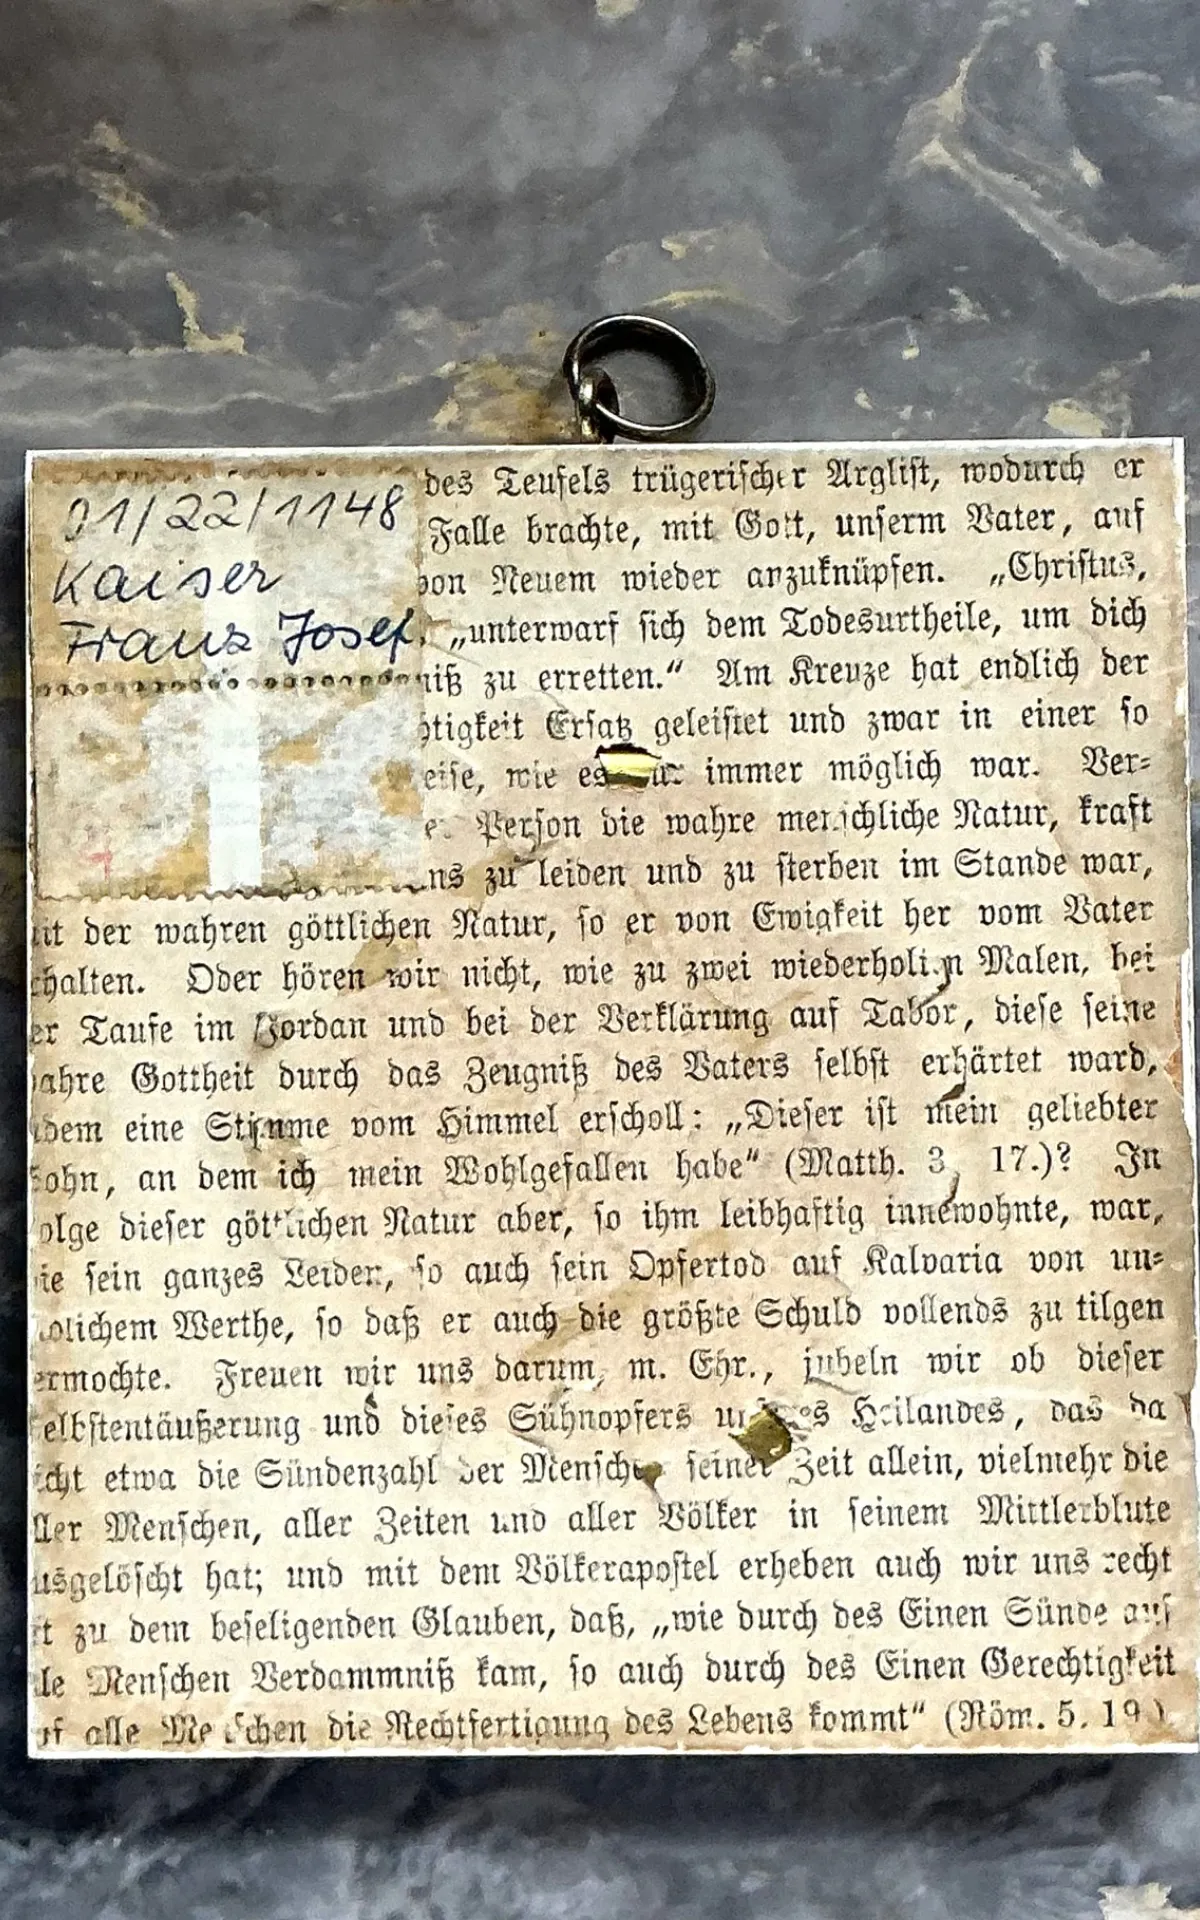 01/22/1148
Kaiser
Franz Josef
des Teufels trügerischer Arglist, wodurch er
Falle brachte, mit Gott, unserm Vater, auf
von Neuem wieder anzuknüpfen. „Christus,
„unterwarf sich dem Todesurtheile, um dich
niß zu erretten.“ Am Kreuze hat endlich der
htigkeit Ersatz geleistet und zwar in einer so
eise, wie es nur immer möglich war. Ver-
Person die wahre menschliche Natur, kraft
ns zu leiden und zu sterben im Stande war,
it der wahren göttlichen Natur, so er von Ewigkeit her vom Vater
halten. Oder hören wir nicht, wie zu zwei wiederholten Malen, bei
er Taufe im Jordan und bei der Verklärung auf Tabor, diese seine
ahre Gottheit durch das Zeugniß des Vaters selbst erhärtet ward,
dem eine Stimme vom Himmel erscholl: „Dieser ist mein geliebter
ohn, an dem ich mein Wohlgefallen habe“ (Matth. 3, 17.)? In
olge dieser göttlichen Natur aber, so ihm leibhaftig innewohnte, war,
ie sein ganzes Leiden, so auch sein Opfertod auf Kalvaria von un-
dlichem Werthe, so daß er auch die größte Schuld vollends zu tilgen
ermochte. Freuen wir uns darum, m. Chr., jubeln wir ob dieser
elbstentäußerung und dieses Sühnopfers unseres Heilandes, das da
icht etwa die Sündenzahl der Menschen seiner Zeit allein, vielmehr die
ller Menschen, aller Zeiten und aller Völker in seinem Mittlerblute
usgelöscht hat; und mit dem Völkerapostel erheben auch wir uns recht
t zu dem beseligenden Glauben, daß, „wie durch des Einen Sünde auf
le Menschen Verdammniß kam, so auch durch des Einen Gerechtigkeit
uf alle Menschen die Rechtfertigung des Lebens kommt“ (Röm. 5. 19.)